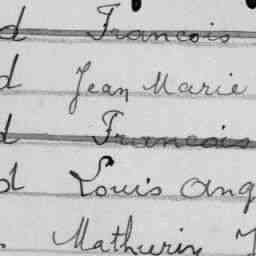 d François
d Jean Marie
d Francois
d Louis Ang
Mathurin J